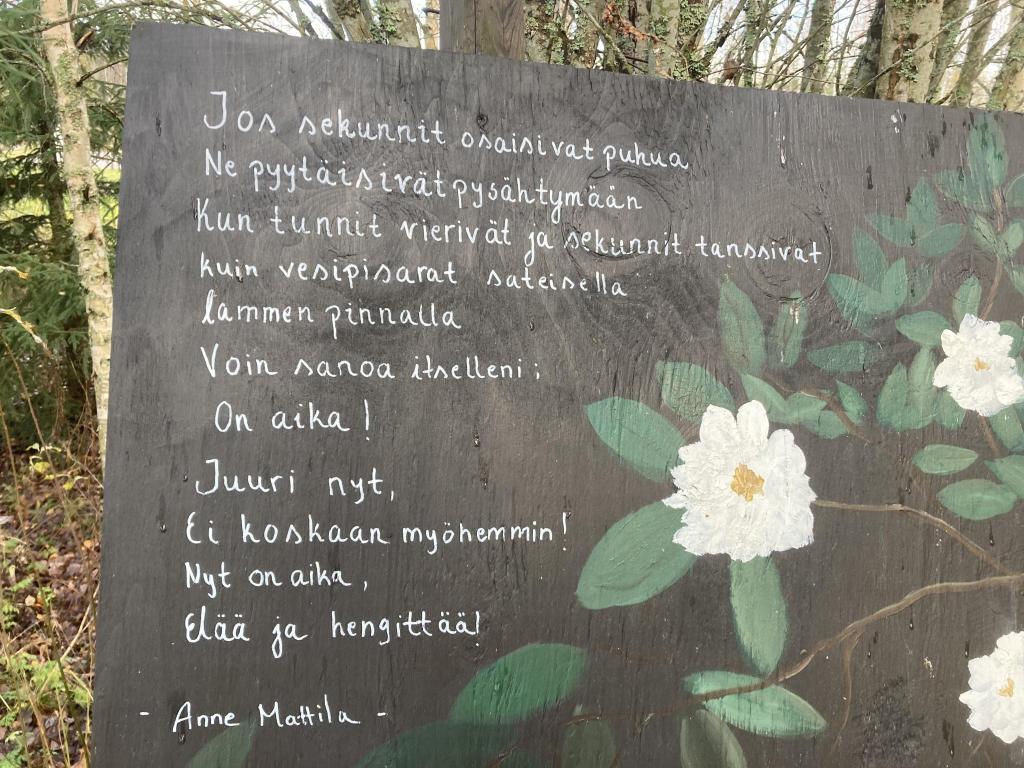 Jos sekunnit osaisivat puhua
Ne pyytäisivät pysähtymään
Kun tunnit vierivät ja sekunnit tanssivat
kuin vesipisarat sateisella
lammen pinnalla
Voin sanoa itselleni;
On aika!
Juuri nyt,
Ei koskaan myöhemmin!
Nyt on aika,
Elää ja hengittää!
- Anne Mattila -